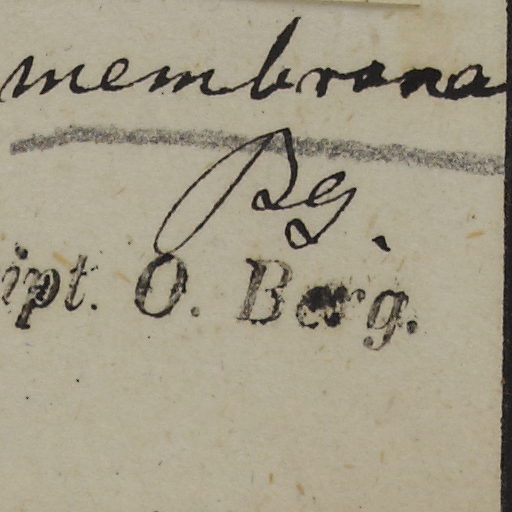 membrana
Bg.
ipt. O. Berg.